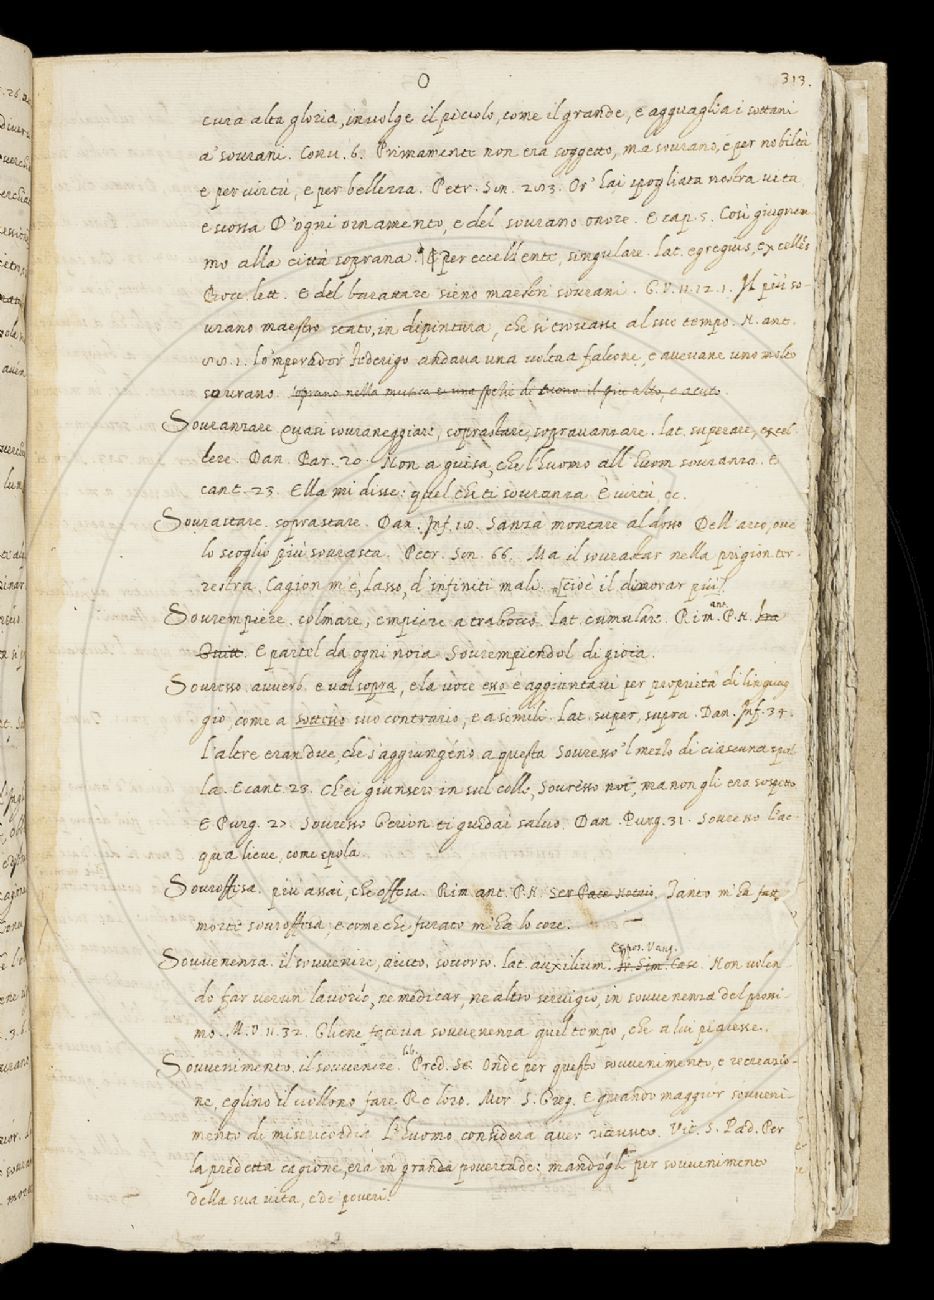 O
313.
cura alta gloria, involge il picciolo, come il grande, e agguaglia i sottani
a' sovrani. Conv. 6. Primamente non era soggetto, ma sovrano, e per nobiltà
e per virtù, e per bellezza. Petr. Son. Or' hai spogliata nostra vita
e scossa D'ogni ornamento, e del sovrano onore. E cap. 5. Così giugnem
mo alla città soprana. per eccellente, singulare. lat. egregius, excellēs
Bocc. lett. E del barattare sieno maestri sovrani. G. V. 11. 12. 1. Il più so-
urano maestro stato, in dipintura, che si trovasse al suo tempo. N. ant.
lo 'mperador Federigo andava una volta a falcone, e avevane uno molto
sovrano. soprano nella musica e una spetie di suono il più alto, e acuto.
Souranzare quasi souraneggiare, soprastare, sopravanzare. lat. superare, excel-
lere. Dan. Par. 20. Non a guisa, che l'huomo all' huom souranza. E
cant. 23. Ella mi disse: quel che ti souranza È virtù, ec.
Sourastare. soprastare. Dan. Inf. 18. Sanza montare al dosso Dell' arco, oue
lo scoglio più sourasta. Petr. Son. 66. Ma il sourastar nella prigion ter-
restra. Cagion m'è, lasso, d'infiniti mali. cioè il dimorar più.
Sourempiere. colmare, empiere a trabocco. lat. cumulare. Rim. ant. P. N.
Guitt. E partel da ogni noia Sourempiendol di gioia.
Souresso. auverb. e val sopra, e la voce esso è aggiuntavi per proprietà di linguag
gio, come a sottesso suo contrario, e a simili. lat. super, supra. Dan. Inf. 34.
L'altre eran due, che s'aggiungéno a questa Souresso 'l mezzo di ciascuna spal
la. E cant. 23. Ch'ei giunsero in sul colle, Souresso noi, ma non gli era sospetto
E Purg. 27 Souresso Gerion ti guidai salvo. Dan. Purg. 31. Souresso l'ac-
qua lieve, come spola.
Souroffesa. piu assai, che offesa. Rim. ant. P. N. Ser Pace Notaio. Tanto m'ha fatta
morte souroffesa, e come che furato m'ha lo core.
Souuenenza. il souuenire, aiuto, soccorso. lat. auxilium. Espos. Vang. Fr. Sim. Casc. Non volen-
do far verun lavorio, ne medicar, ne altro servigio, in souuenenza del prossi-
mo. M. V. 11. 32. Gliene faceva souuenenza quel tempo, che a lui piacesse.
Souuenimento. il souuenire. Pred. Onde per questo souuenimento, e recreazio-
ne, eglino il vollono fare Re loro. Mor. S. Greg. E quando maggior souueni-
mento di misericordia l'huomo considera aver ricevuto. Vit. S. Pad. Per
la predetta cagione, era in grande povertade: mandògli per souuenimento
della sua vita, e de' poveri.